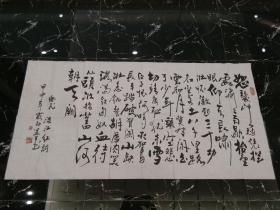 怒髮冲冠憑欄
處瀟瀟雨歇抬望
眼仰天長嘯壯
懷激烈三十功
名塵与土八千里路
雲和月莫等閑白
了少年頭空悲
切靖康恥猶未雪
臣子恨何時滅駕
長車踏破賀蘭山缺
壯志飢餐胡虜肉
笑談渴飲匈奴血待從
頭收拾舊山河
朝天闕
岳飛 滿江紅詞
甲申年